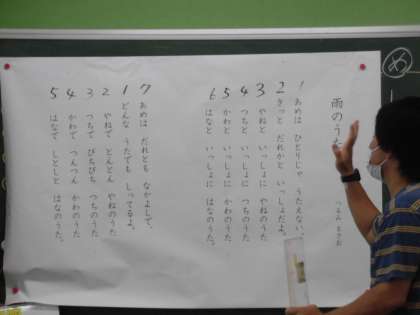 め
雨のうた
つるみ まさお
1 あめは ひとりじゃ うたえない、
2 きっと だれかと いっしょだよ。
3 やねと いっしょに やねのうた
4 つちと いっしょに つちのうた
5 かわと いっしょに かわのうた
6 はなと いっしょに はなのうた。
7 あめは だれとも なかよしで、
1 どんな うたでも しってるよ。
2 やねで とんとん やねのうた
3 つちで ぴちぴち つちのうた
4 かわで つんつん かわのうた
5 はなで しとしと はなのうた。